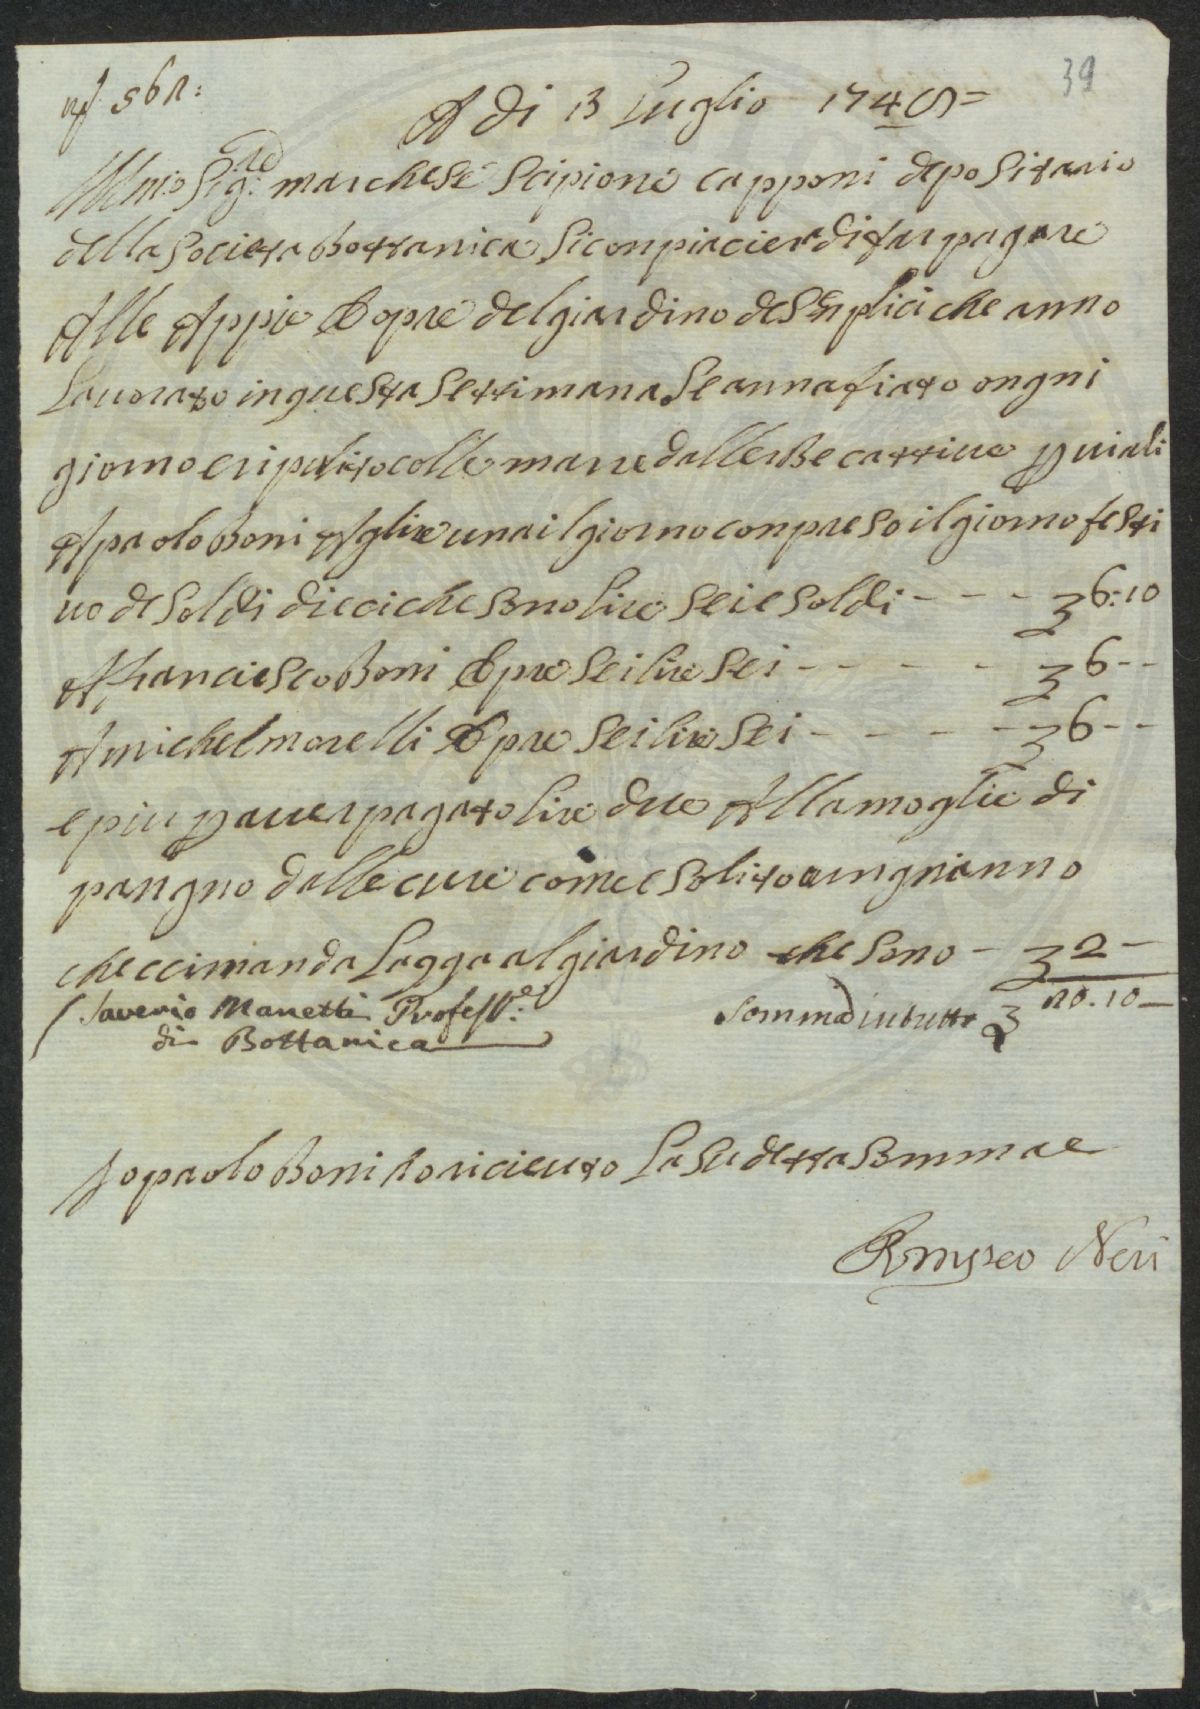 39
A di 13 Luglio 174
Ill.mo Sig.re marchese Scipione capponi depositario
della Societa Bottanica Si conpiacierà di far pagare
Alle Appie Opre del giardino de Senplici che anno
Lavorato in questa Settimana Se annafiato ongni
giorno e ripulito colle marre dall erbe cattive p viali
A paolo Boni A lire una il giorno conpreso il giorno festi
vo de Soldi dieci che sono Lire Sei e Soldi - - - 6:10
A Franciesco Boni Opre Sei lire Sei - - - - - 6 - -
A michel morelli Opre Sei lire Sei - - - - - 6 - -
e piu p aver pagato lire due Alla moglie di
pangno dalle cure come e solito ongni anno
che ci manda Laqqa al giardino che Sono - 2 -
Saverio Manetti Profess.re
di Bottanica
Somma in tutto 20.10 -
Io paolo Boni o ricieuto La Sudetta Somma e
Neri